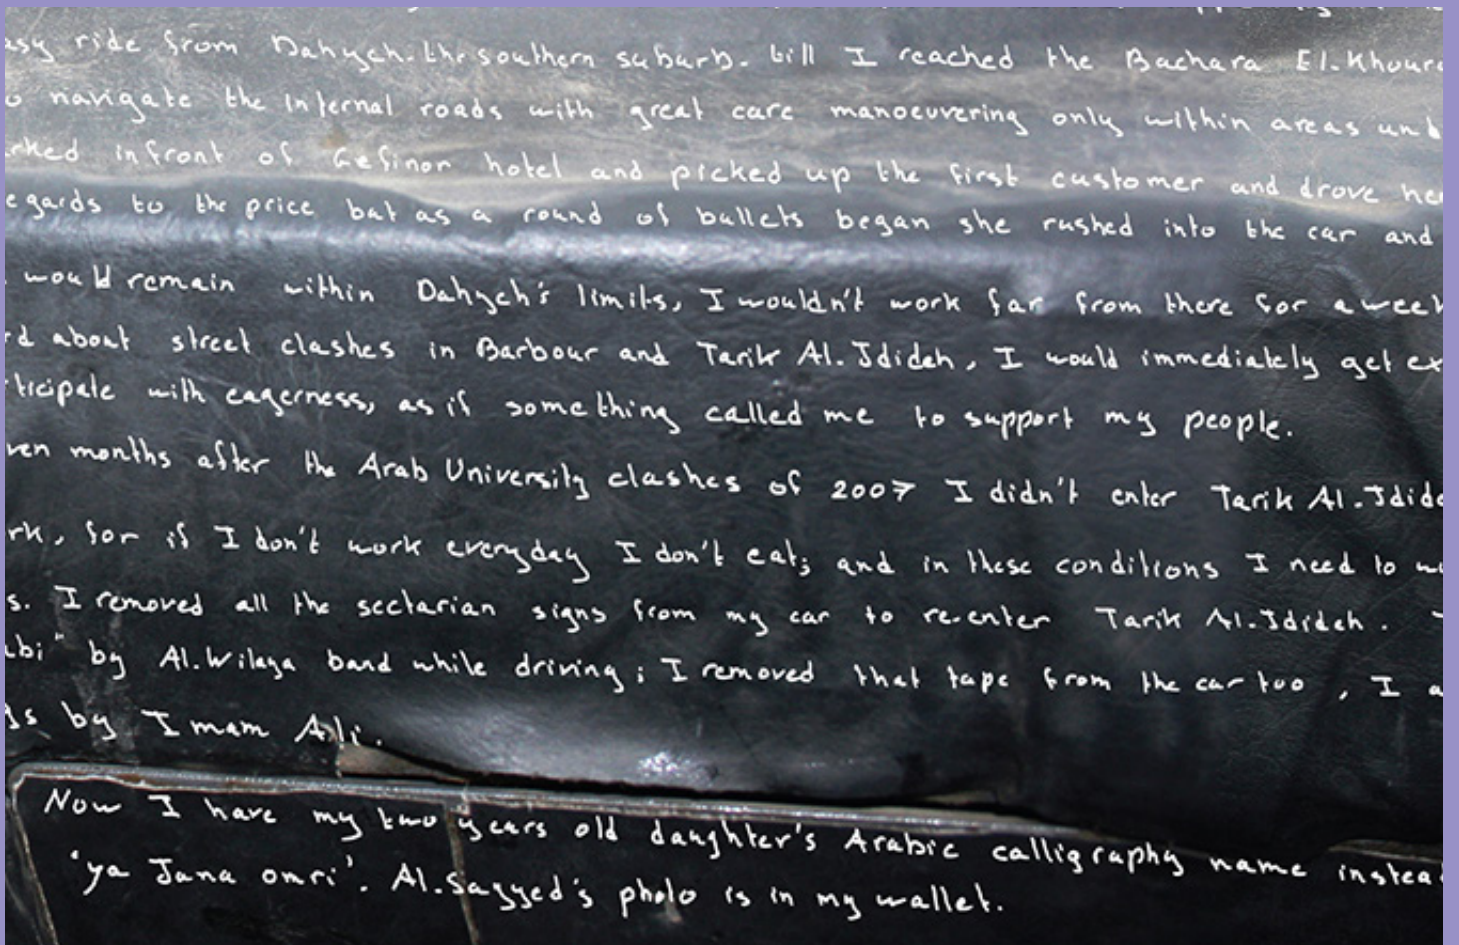 asy ride from Dahyeh. the southern suburb. till I reached the Bachara El.Khour
o navigate the internal roads with great care manoeuvering only within areas unt
rked infront of Gefinor hotel and picked up the first customer and drove her
egards to the price but as a round of bullets began she rushed into the car and
would remain within Dahyeh's limits, I wouldn't work far from there for a week
rd about street clashes in Barbour and Tarik Al.Jdideh, I would immediately get ex
ticipate with eagerness, as if something called me to support my people.
ven months after the Arab University clashes of 2007 I didn't enter Tarik Al.Jdide
rk, for if I don't work everyday I don't eat; and in these conditions I need to w
s. I removed all the sectarian signs from my car to re.enter Tarik Al.Jdideh.
abi" by Al.Wilaya band while driving; I removed that tape from the car too, I a
ds by Imam Ali.
Now I have my two years old daughter's Arabic calligraphy name instea
'ya Jana omri'. Al.Sayyed's photo is in my wallet.